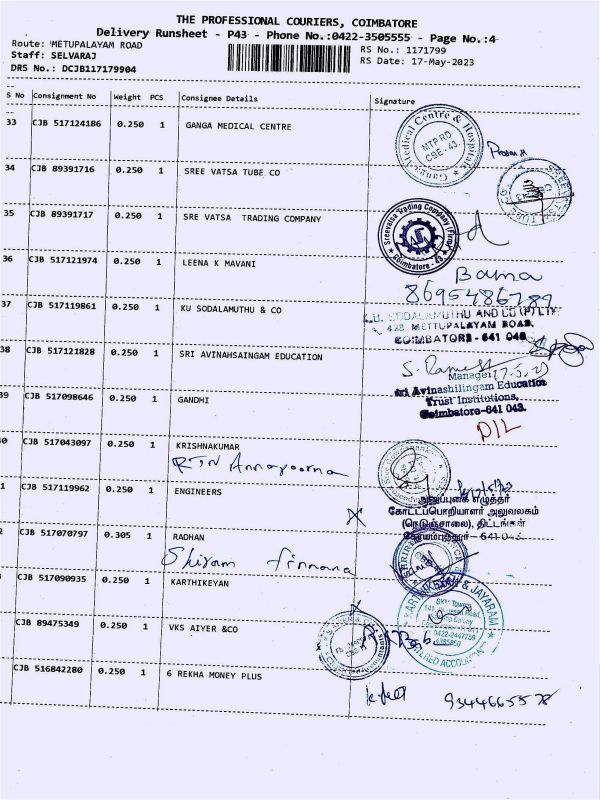 THE PROFESSIONAL COURIERS, COIMBATORE
Delivery Runsheet - P43 - Phone No.:0422-3505555 - Page No.:4
Route: METUPALAYAM ROAD
RS No.: 1171799
Staff: SELVARAJ
RS Date: 17-May-2023
DRS No.: DCJB117179904
S No Consignment No Weight PCS Consignee Details Signature
33 CJB 517124186 0.250 1 GANGA MEDICAL CENTRE
Ganga Medical Centre & Hospitals
MTP RD
CBE-43.
34 CJB 89391716 0.250 1 SREE VATSA TUBE CO
35 CJB 89391717 0.250 1 SRE VATSA TRADING COMPANY
Sreevatsa Trading Company (Firm)
Coimbatore - 43
36 CJB 517121974 0.250 1 LEENA K MAVANI
Bama
8695486789
37 CJB 517119861 0.250 1 KU SODALAMUTHU & CO
SODALAMUTHU AND CO (P) LTD
428 METTUPALAYAM ROAD,
COIMBATORE - 641 043
38 CJB 517121828 0.250 1 SRI AVINAHSAINGAM EDUCATION
S. Ramesh
Manager 17.5.23
Sri Avinashilingam Education
Trust Institutions,
Coimbatore-641 043.
39 CJB 517098646 0.250 1 GANDHI
D/L
0 CJB 517043097 0.250 1 KRISHNAKUMAR
RTN Annapoorna
1 CJB 517119962 0.250 1 ENGINEERS
அலுவலகம்
(நெடுஞ்சாலை), திட்டங்கள்
கோயம்புத்தூர் - 641 043
2 CJB 517070797 0.305 1 RADHAN
Shiram Finnana
CJB 517090935 0.250 1 KARTHIKEYAN
& JAYARAM
0422-2447759
CJB 89475349 0.250 1 VKS AIYER &CO
CJB 516842280 0.250 1 6 REKHA MONEY PLUS
9344665578